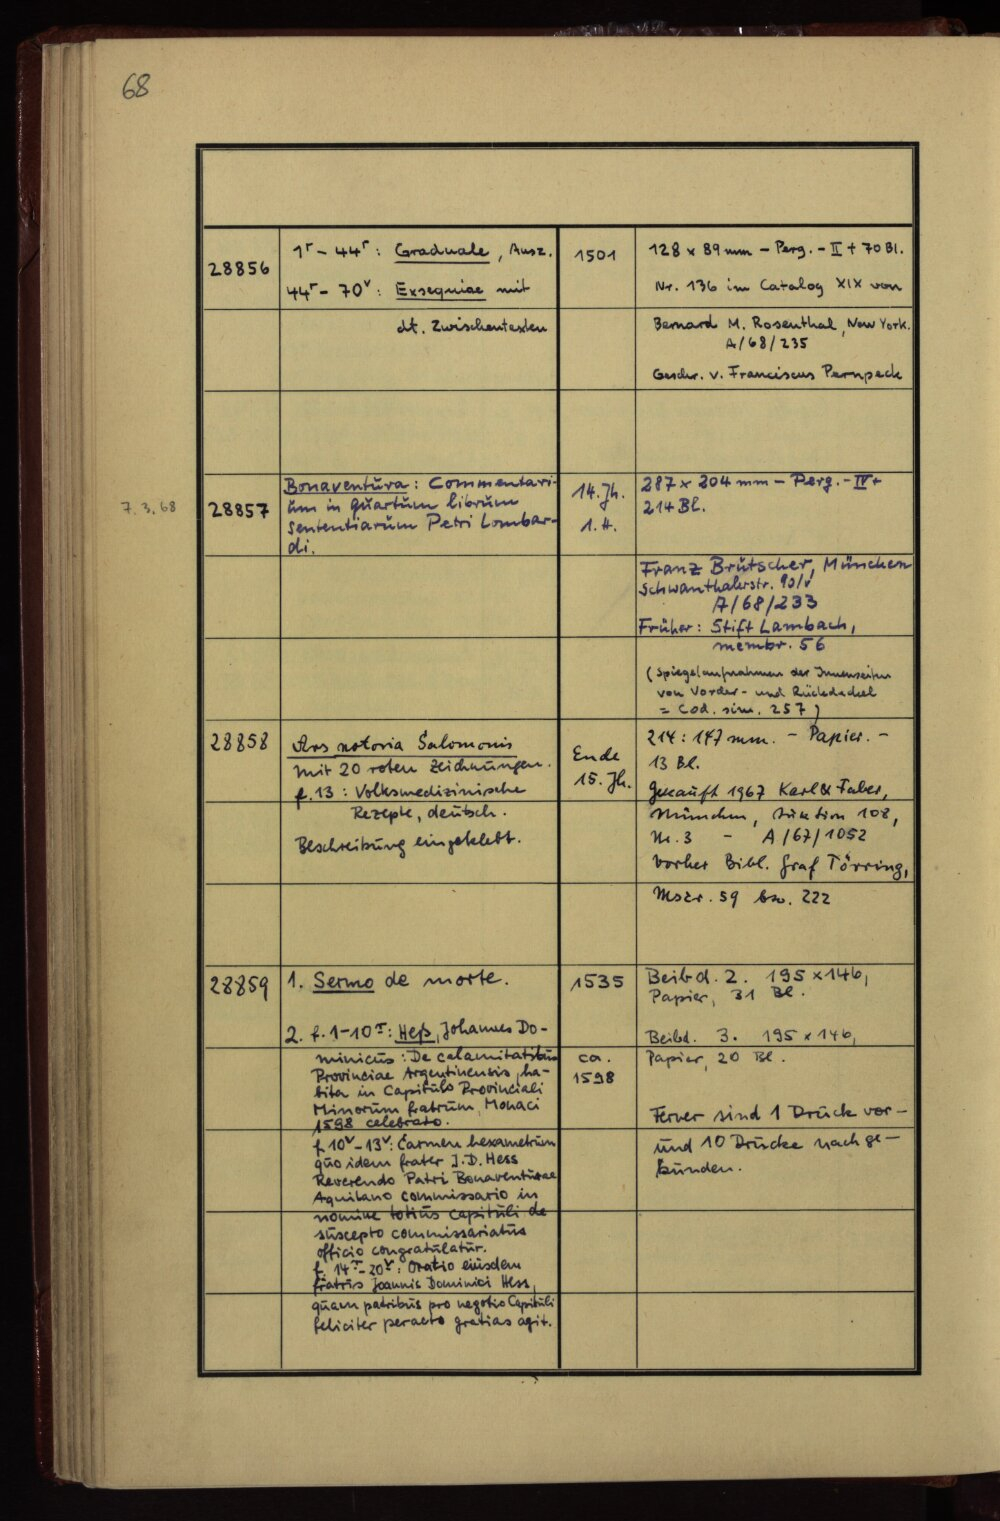 68
28856
1ʳ – 44ʳ : Graduale, Ausz.
44ʳ – 70ᵛ : Exsequiae mit
dt. Zwischentexten
1501
128 x 89 mm – Perg. – II + 70 Bl.
Nr. 136 im Catalog XIX von
Bernard M. Rosenthal, New York.
A/68/235
Geschr. v. Franciscus Pernpeck
7. 3. 68
28857
Bonaventura: Commentari-
um in quartum librum
sententiarum Petri Lombar-
di.
14. Jh.
1. H.
287 x 204 mm – Perg. – IV +
214 Bl.
Franz Brütscher, München
Schwanthalerstr. 90/V
A/68/233
Früher: Stift Lambach,
membr. 56
(Spiegelaufnahmen der Innenseiten
von Vorder- und Rückdeckel
= Cod. sim. 257)
28858
Ars notoria Salomonis
mit 20 roten Zeichnungen.
f. 13 : Volksmedizinische
Rezepte, deutsch.
Beschreibung eingeklebt.
Ende
15. Jh.
214 : 147 mm. – Papier. –
13 Bl.
Gekauft 1967 Karl & Faber,
München, Auktion 108,
Nr. 3 – A/67/1052
Vorher Bibl. Graf Törring,
Mscr. 59 bzw. 222
28859
1. Sermo de morte.
2. f. 1–10ʳ: Heß, Johannes Do-
minicus: De calamitatibus
Provinciae Argentinensis, ha-
bita in Capitulo Provinciali
Minorum fratrum, Monaci
1598 celebrato.
f 10ᵛ–13ᵛ: Carmen hexametrum
quo idem frater J. D. Hess
Reverendo Patri Bonaventurae
Aquilano commissario in
nomine totius capituli de
suscepto commissariatus
officio congratulatur.
f. 14ʳ–20ᵛ: Oratio eiusdem
fratris Joannis Dominici Hess,
quam patribus pro negotio Capituli
feliciter peracto gratias agit.
1535
ca.
1598
Beibd. 2. 195 x 146,
Papier, 31 Bl.
Beibd. 3. 195 x 146,
Papier, 20 Bl.
Ferner sind 1 Druck vor-
und 10 Drucke nachge-
bunden.